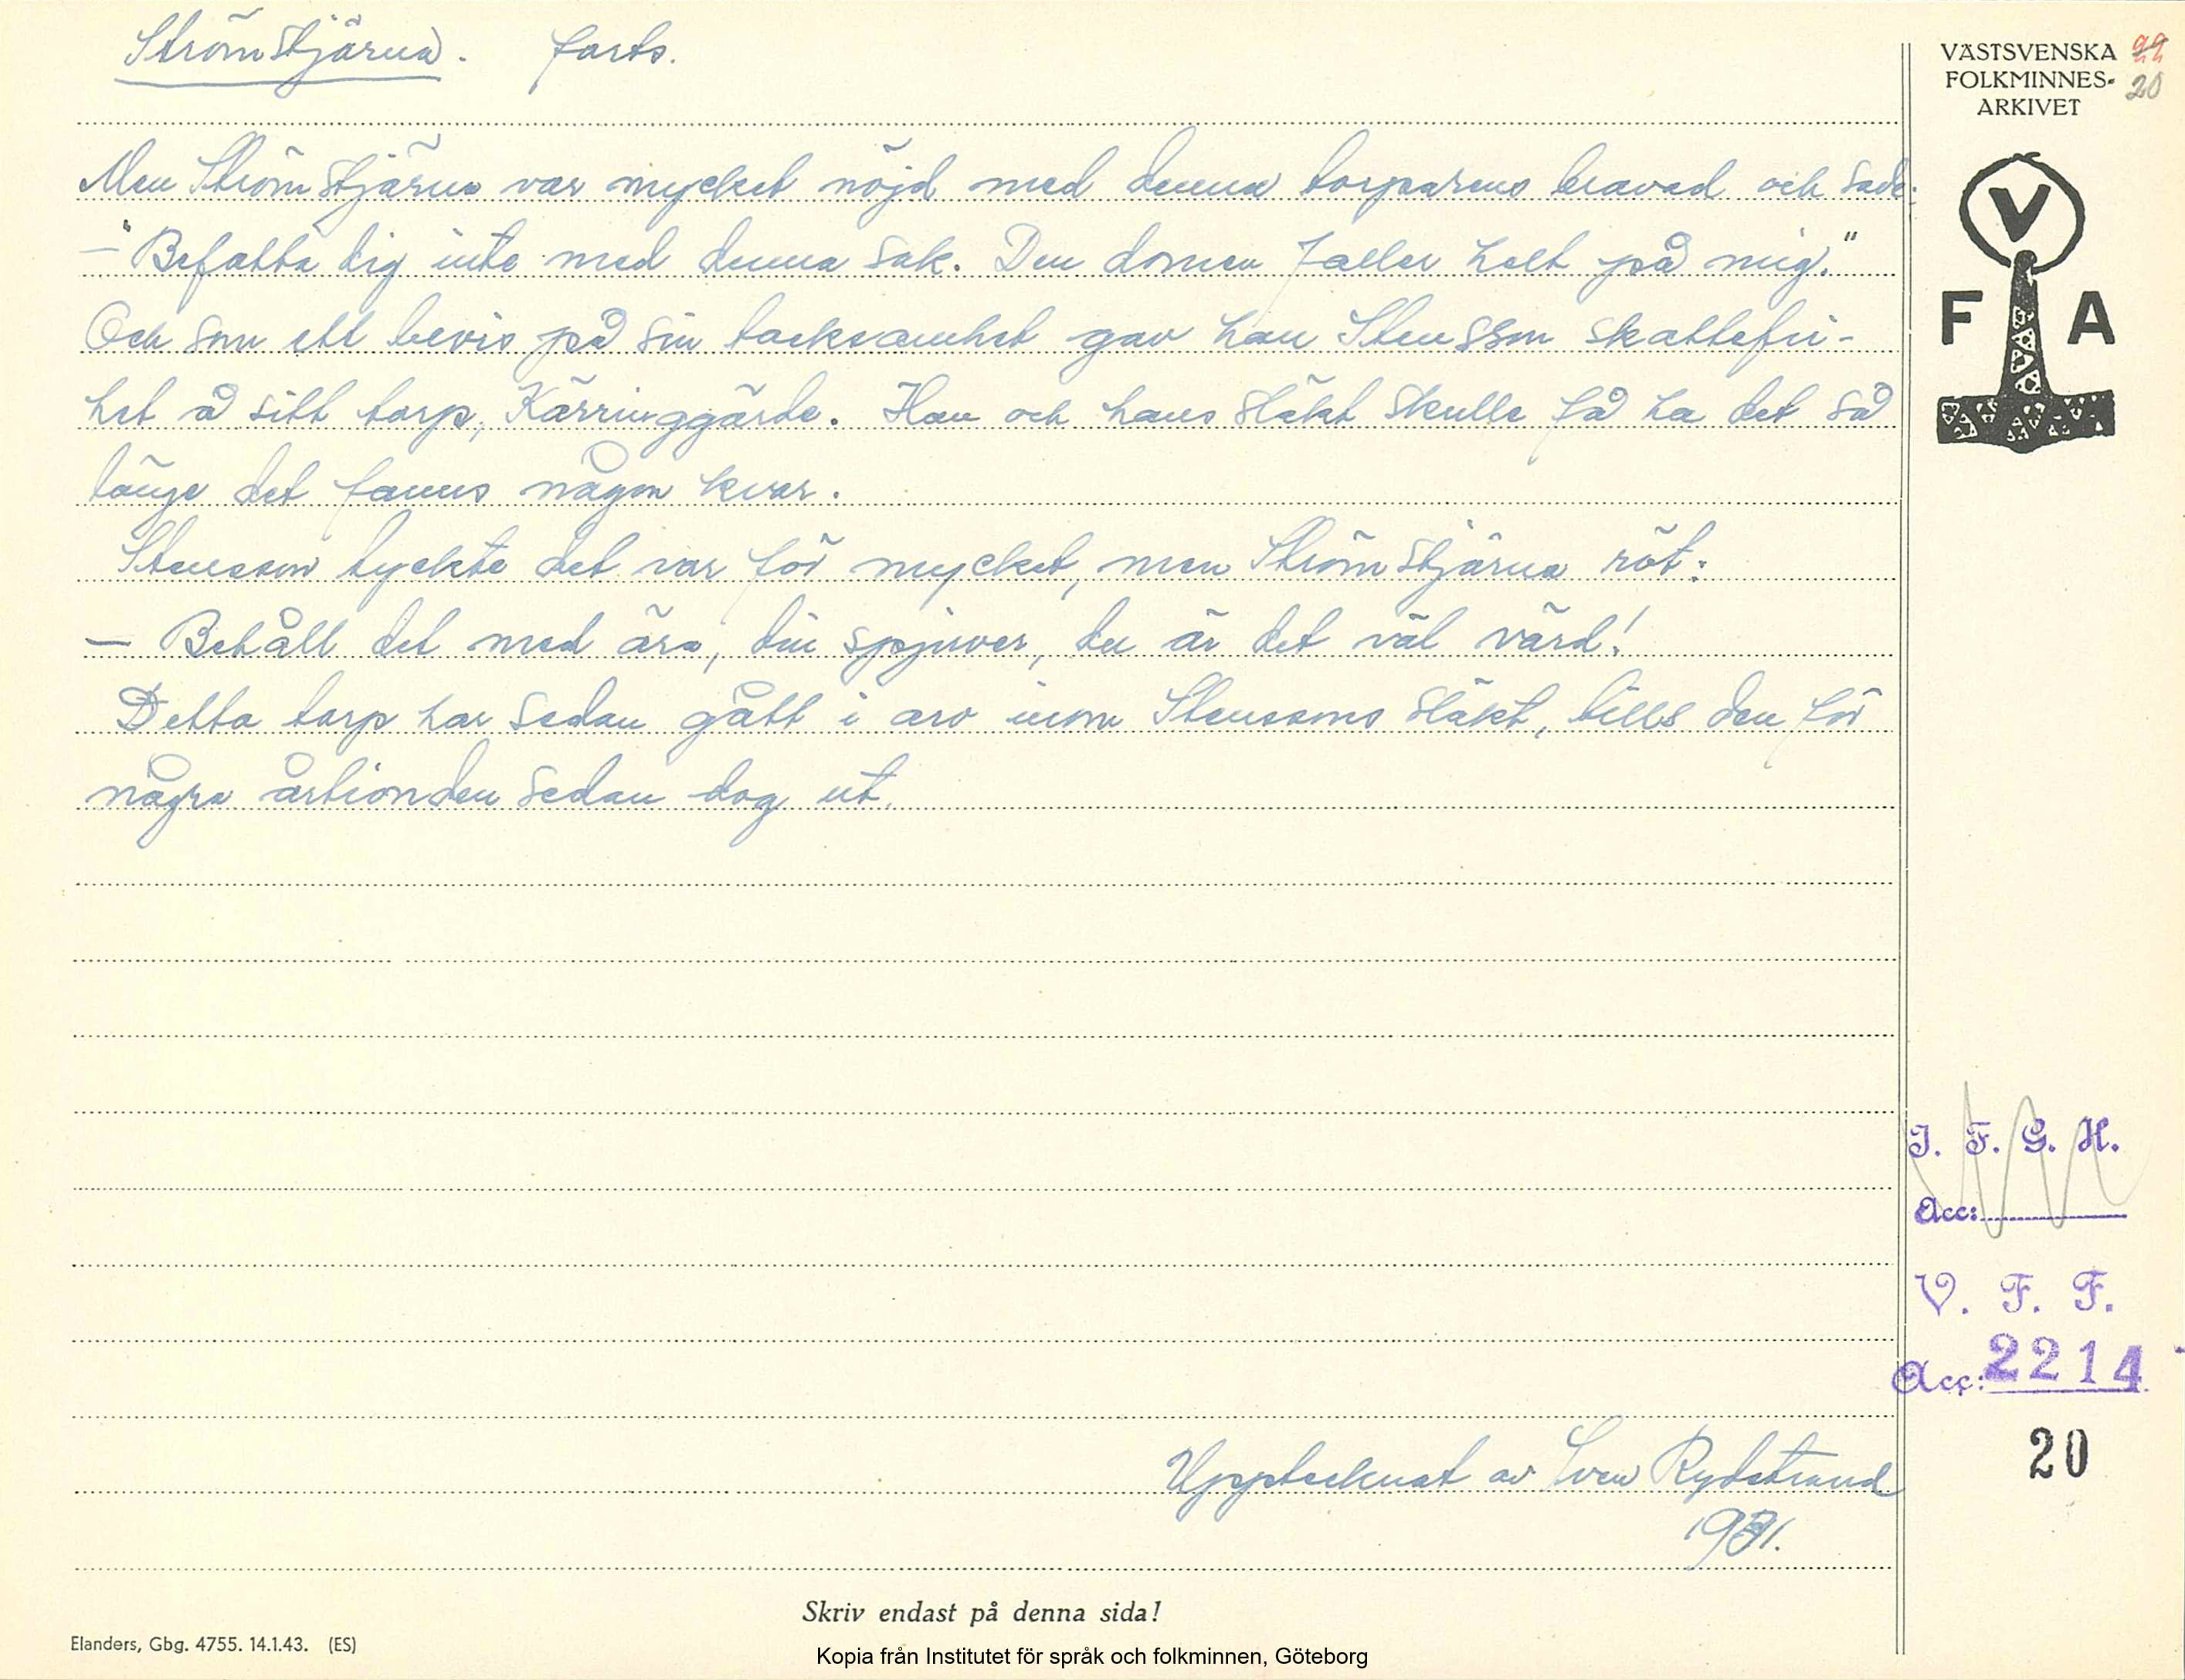 Strömstjärna. forts.
Men Strömstjärna var mycket nöjd med denna torparens bravad och sade:
—"Befatta dig inte med denna sak. Den domen faller helt på mig."
Och som ett bevis på sin tacksamhet gav han Stensson skattefri-
het å sitt torp, Kärringgärde. Han och hans släkt skulle få ha det så
länge det fanns någon kvar.
Stensson tyckte det var för mycket, men Strömstjärna röt:
— Behåll det med ära, din spjuver, du är det väl värd!
Detta torp har sedan gått i arv inom Stenssons släkt, tills den för
några årtionden sedan dog ut.
Upptecknat av Sven Rydstrand
Skriv endast på denna sida!
Elanders, Gbg. 4755. 14.1.43. (ES)
Kopia från Institutet för språk och folkminnen, Göteborg
VÄSTSVENSKA
FOLKMINNES-
ARKIVET
20
V
F A
I. F. G. H.
Acc:
V. F. F.
Acc: 2214
20